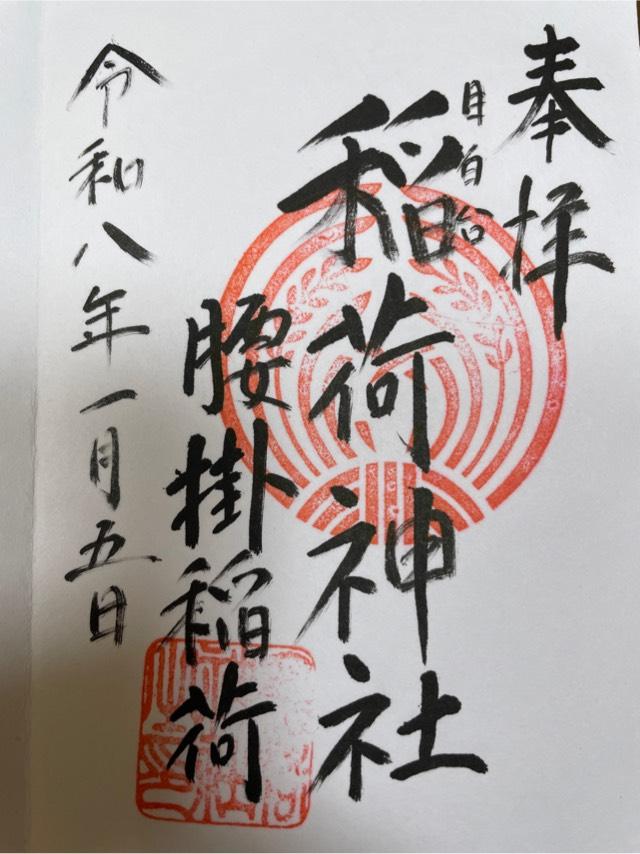 奉拝
目白台
稲荷神社
腰掛稲荷
令和八年一月五日